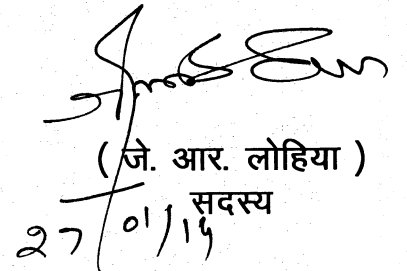 ( जे. आर. लोहिया )
सदस्य
27/01/15